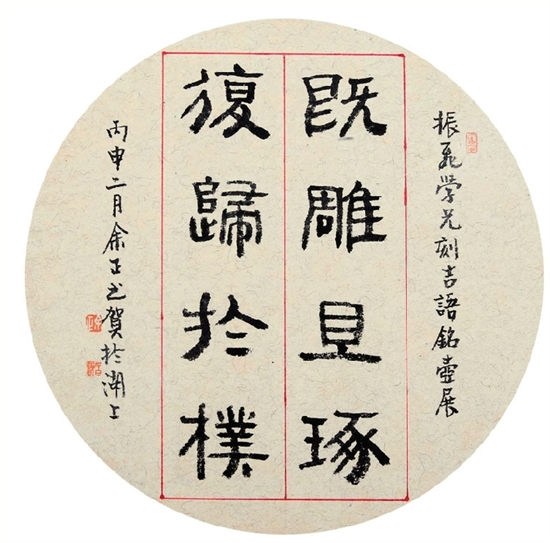 振飛学兄刻吉語銘壺展
既雕且琢
復歸於樸
丙申二月余正书賀於湖上